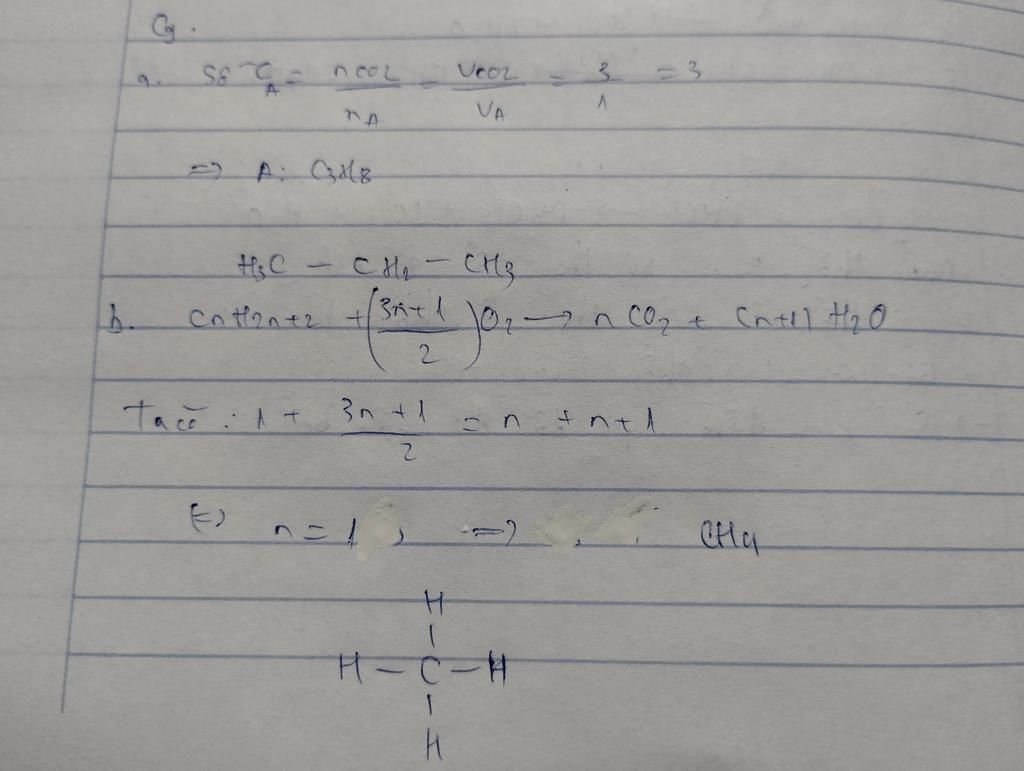 Cg.
a. Số C A = nCO2 / nA = VCO2 / VA = 3 / 1 = 3
=> A: C3H8
H3C - CH2 - CH3
b. CnH2n+2 + (3n+1 / 2) O2 -> n CO2 + (n+1) H2O
Ta có: 1 + 3n+1 / 2 = n + n+1
(=) n = 1 => CH4
H
H - C - H
H